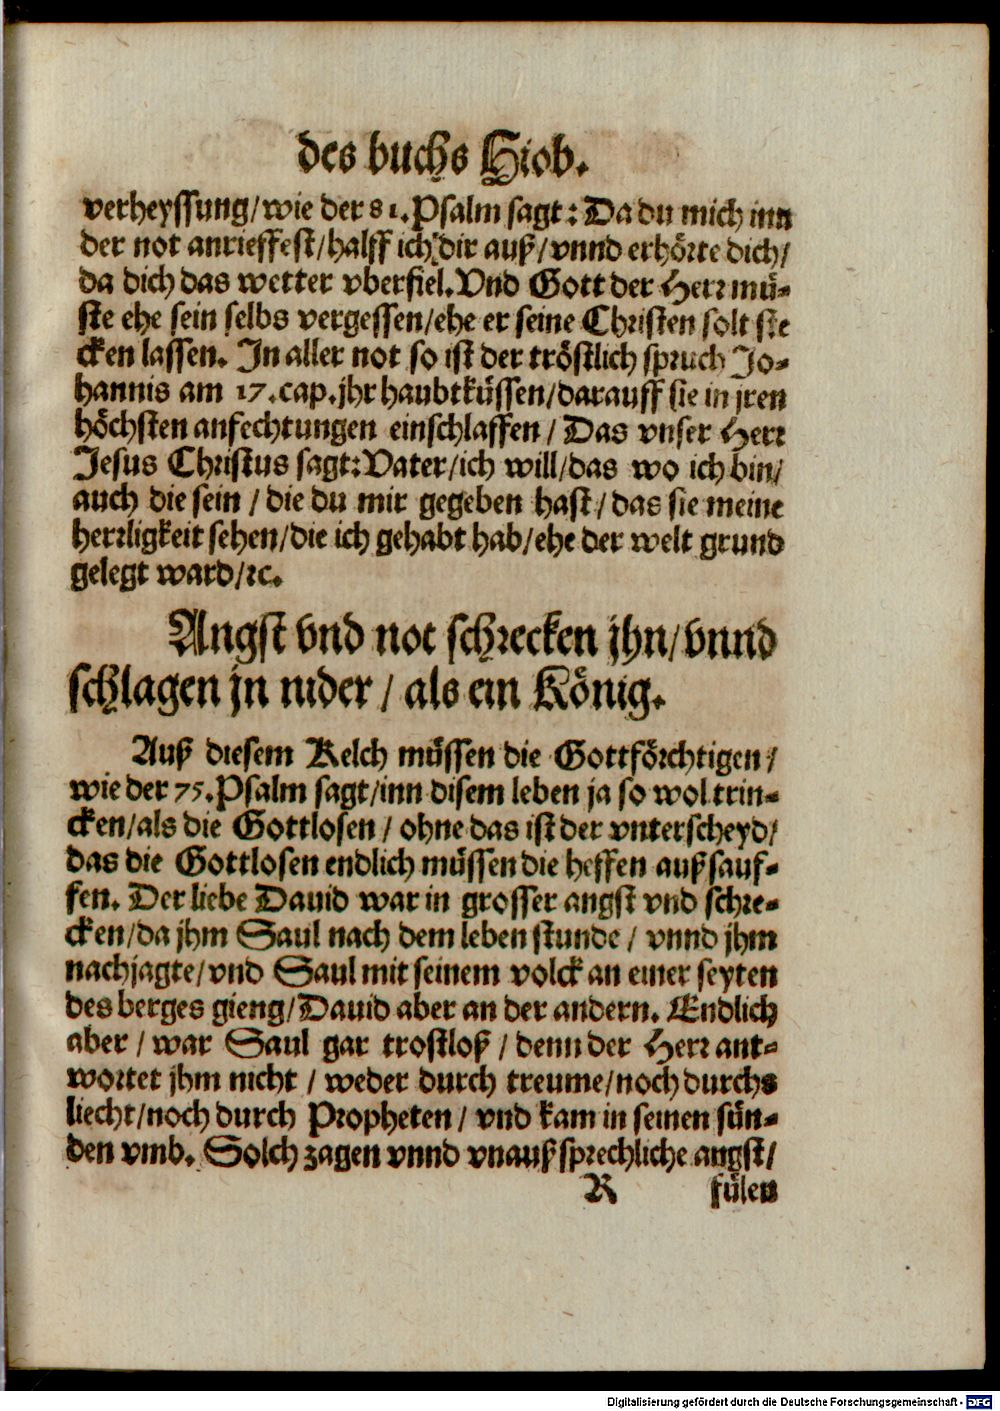 des buchs Hiob.
verheyssung/wie der 81. Psalm sagt: Da du mich inn
der not anrieffest/halff ich dir auß/vnnd erhörte dich/
da dich das wetter vberfiel. Vnd Gott der Herr mü-
ste ehe sein selbs vergessen/ehe er seine Christen solt ste
cken lassen. In aller not so ist der tröstlich spruch Jo-
hannis am 17. cap. jhr haubtküssen/darauff sie in jren
höchsten anfechtungen einschlaffen / Das vnser Herr
Jesus Christus sagt: Vater/ich will/das wo ich bin/
auch die sein / die du mir gegeben hast / das sie meine
herrligkeit sehen/die ich gehabt hab/ehe der welt grund
gelegt ward/ꝛc.
Angst vnd not schrecken jhn/vnnd
schlagen jn nider / als ein König.
Auß diesem Kelch müssen die Gottförchtigen/
wie der 75. Psalm sagt/inn disem leben ja so wol trin-
cken/als die Gottlosen / ohne das ist der vnterscheyd/
das die Gottlosen endlich müssen die heffen auß sauf-
fen. Der liebe Dauid war in grosser angst vnd schre-
cken/da jhm Saul nach dem leben stunde / vnnd jhm
nachjagte/vnd Saul mit seinem volck an einer seyten
des berges gieng/Dauid aber an der andern. Endlich
aber / war Saul gar trostloß / denn der Herr ant-
wortet jhm nicht / weder durch treume/noch durchs
liecht/noch durch Propheten / vnd kam in seinen sün-
den vmb. Solch zagen vnnd vnaußsprechliche angst/
R fülen
Digitalisierung gefördert durch die Deutsche Forschungsgemeinschaft - DFG